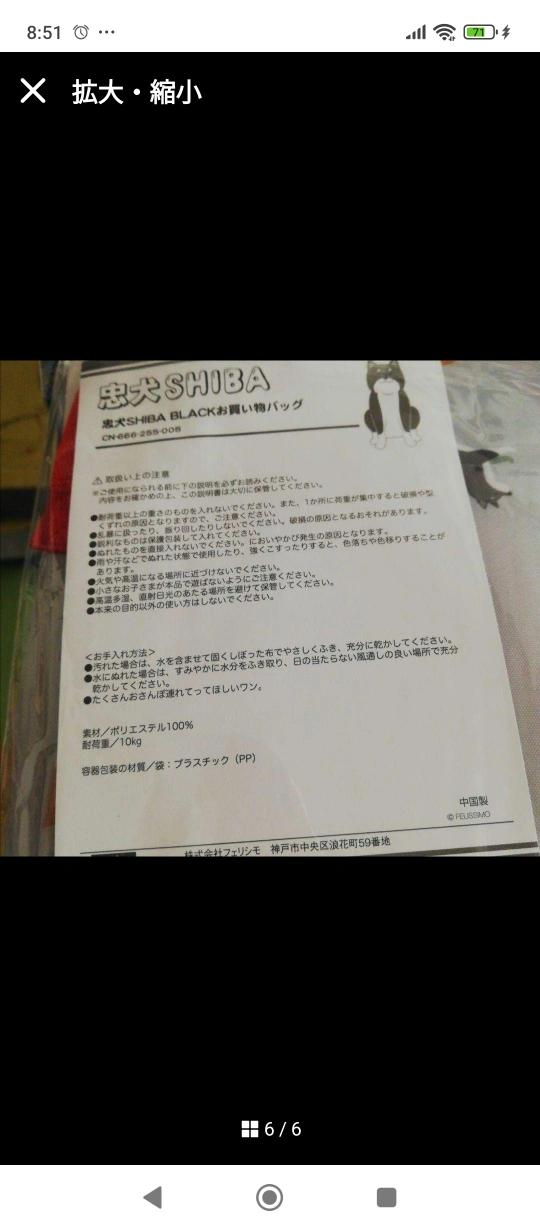 8:51
71
拡大・縮小
忠犬SHIBA
忠犬SHIBA BLACKお買い物バッグ
CN-666-255-005
取扱い上の注意
※ご使用になられる前に下の説明を必ずお読みください。
内容をお確かめの上、この説明書は大切に保管してください。
●耐荷重以上の重さのものを入れないでください。また、1か所に荷重が集中すると破損や型
くずれの原因となりますので、ご注意ください。
●乱暴に扱ったり、振り回したりしないでください。破損の原因となるおそれがあります。
●鋭利なものは保護包装して入れてください。
●ぬれたものを直接入れないでください。においやかび発生の原因となります。
●雨や汗などでぬれた状態で使用したり、強くこすったりすると、色落ちや色移りすることが
あります。
●火気や高温になる場所に近づけないでください。
●小さなお子さまが本品で遊ばないようにご注意ください。
●高温多湿、直射日光のあたる場所を避けて保管してください。
●本来の目的以外の使い方はしないでください。
＜お手入れ方法＞
●汚れた場合は、水を含ませて固くしぼった布でやさしくふき、充分に乾かしてください。
●水にぬれた場合は、すみやかに水分をふき取り、日の当たらない風通しの良い場所で充分
乾かしてください。
●たくさんおさんぽ連れてってほしいワン。
素材／ポリエステル100%
耐荷重／10kg
容器包装の材質／袋：プラスチック（PP）
中国製
© FELISSIMO
株式会社フェリシモ 神戸市中央区浪花町59番地
6 / 6